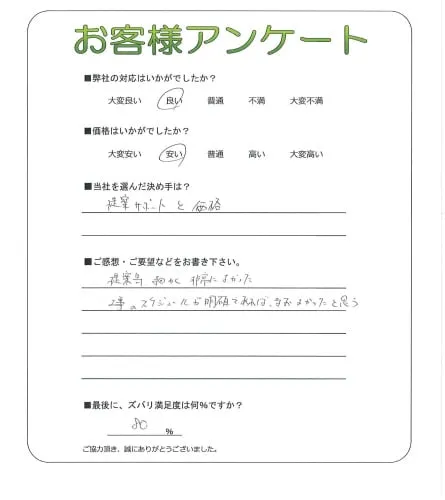 お客様アンケート
■弊社の対応はいかがでしたか？
大変良い 良い 普通 不満 大変不満
■価格はいかがでしたか？
大変安い 安い 普通 高い 大変高い
■当社を選んだ決め手は？
提案サポートと価格
■ご感想・ご要望などをお書き下さい。
提案等 細かく 非常によかった
工事のスケジュールが明確であれば、なおよかったと思う
■最後に、ズバリ満足度は何％ですか？
80 %
ご協力頂き、誠にありがとうございました。